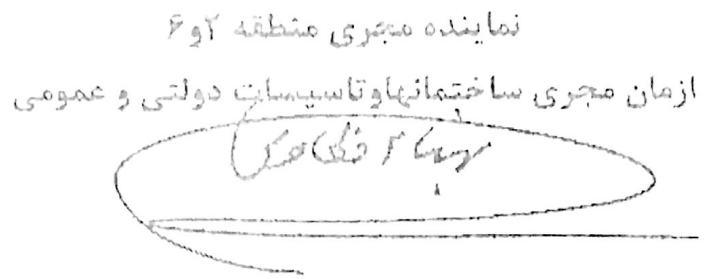 نماینده مجری منطقه ۲و۶
ازمان مجری ساختمانهاوتاسیسات دولتی و عمومی